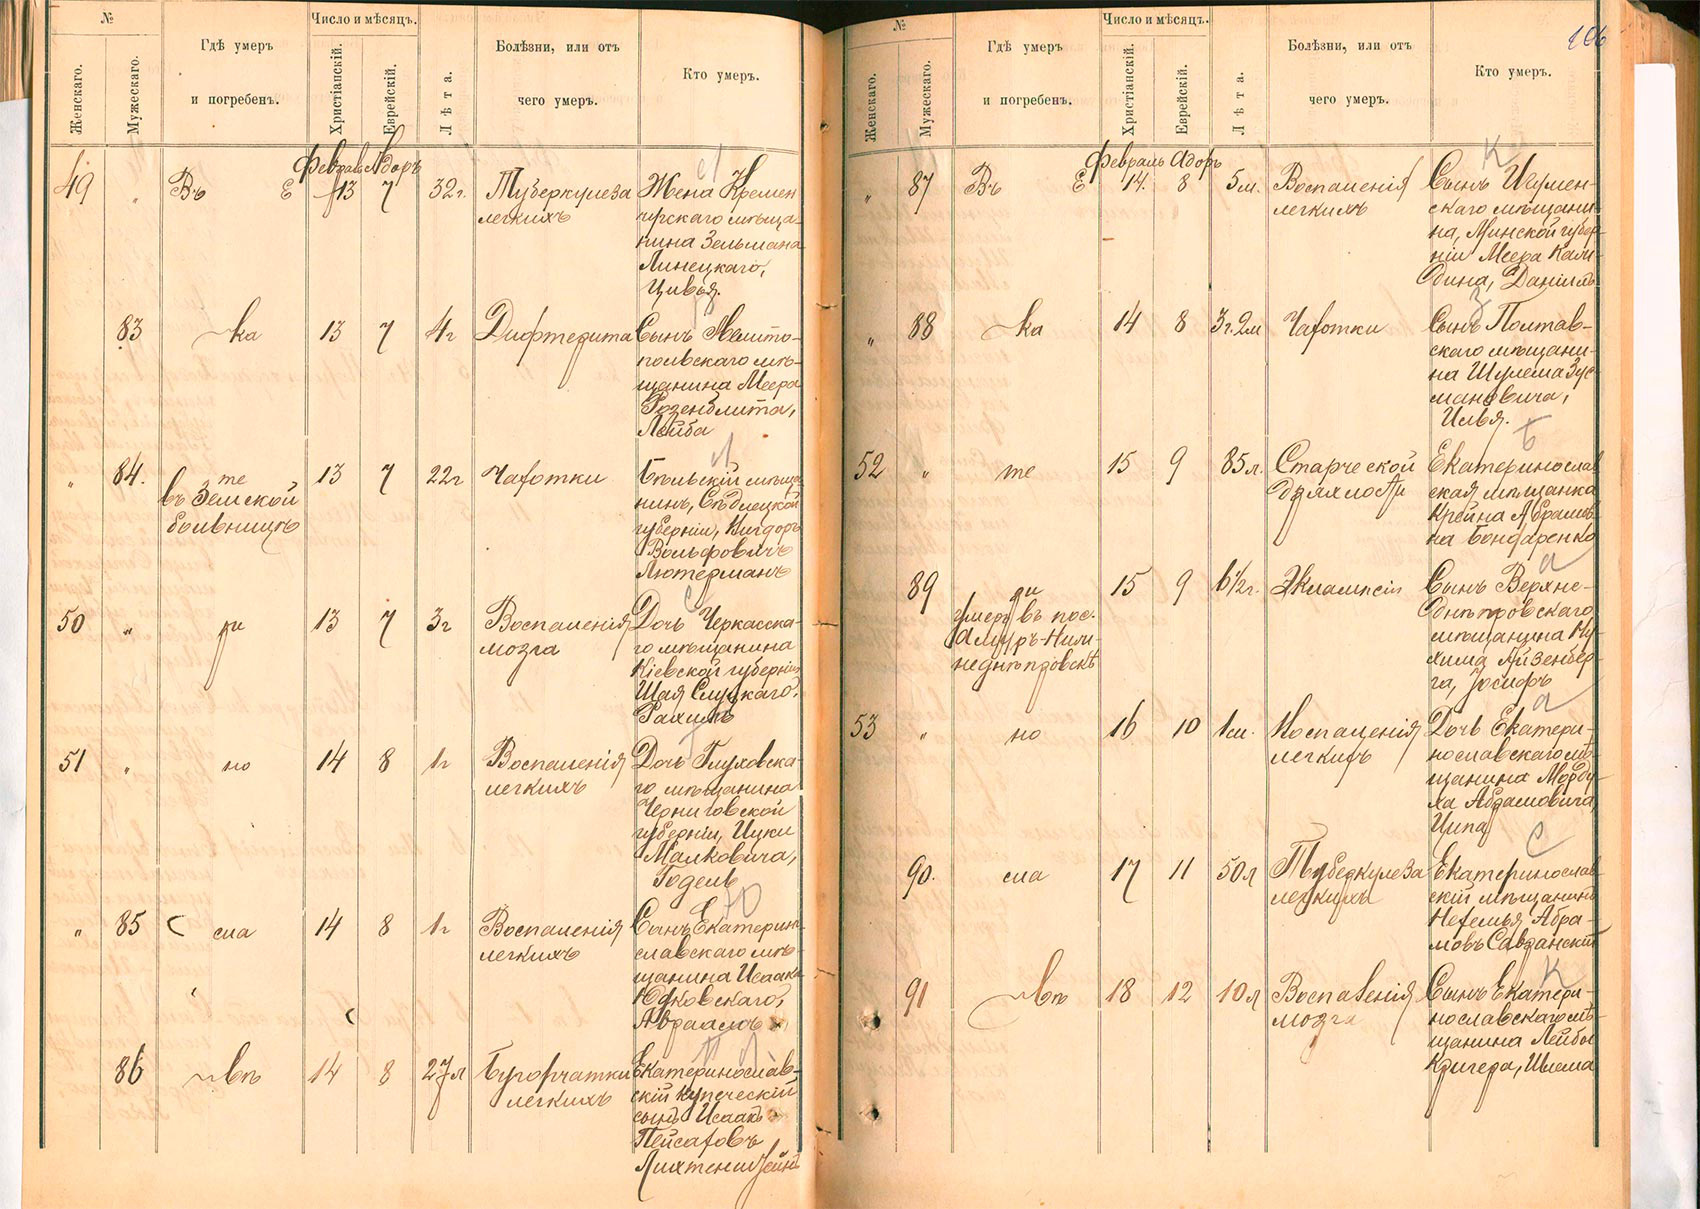 №
Женскаго.
Мужескаго.
Гдѣ умеръ
и погребенъ.
Число и мѣсяцъ.
Христіанскій.
Еврейскій.
Лѣта.
Болѣзни, или отъ
чего умеръ.
Кто умеръ.
Февраль Адоръ
49 " Въ Е 13 7 32г. Туберкулеза
легкихъ
Жена Кремен
чугскаго мѣща-
нина Зельмана
Линецкаго,
Цивья.
83 ка 13 7 4г Дифтерита
Сынъ Мелито-
польскаго мѣ-
щанина Меера
Розенблита,
Лейба
" 84. те 13 7 22г Чахотки
въ Земской
больницѣ
Бѣльскій мѣща
нинъ, Сѣдлецкой
губерніи,
Вольфовичъ
Лютерманъ
50 " ри 13 7 3г Воспаленія
мозга
Дочь Черкасска-
го мѣщанина
Кіевской губерніи
Шая Слуцкаго.
Рахиль
51 " но 14 8 1г Воспаленія
легкихъ
Дочь Глуховска-
го мѣщанина
Черниговской
губерніи, Ицки
Малковича,
Годель
" 85 сла 14 8 1г Воспаленія
легкихъ
Сынъ Екатерино-
славскаго мѣ-
щанина Исаака
Юдковскаго,
Авраамъ
86 вѣ 14 8 27л Бугорчатки
легкихъ
Екатеринослав-
скій купеческій
сынъ Исаакъ
Пейсаховъ
Лихтенштейнъ
106
№
Женскаго.
Мужескаго.
Гдѣ умеръ
и погребенъ.
Число и мѣсяцъ.
Христіанскій.
Еврейскій.
Лѣта.
Болѣзни, или отъ
чего умеръ.
Кто умеръ.
К
Февраль Адоръ
" 87 Въ Е 14. 8 5м. Воспаленія
легкихъ
Сынъ Игумен-
скаго мѣщани-
на, Минской губер-
ніи Меера Кали-
дина, Даніилъ
З
" 88 ка 14 8 3г.2м Чахотки
Сынъ Полтав-
скаго мѣщани-
на Шулема Зус
мановича,
Илья.
Б
52 " те 15 9 85л. Старческой
дряхлости
Екатеринослав
ская мѣщанка
Крейна Абрамов-
на Бондаренко
а
89 ри 15 9 6½г. Эклампсіи
умеръ въ пос.
Амуръ-Ниж-
неднѣпровскѣ
Сынъ Верхне-
днѣпровскаго
мѣщанина Ну-
хима Айзенбер-
га, Іосифъ
а
53 " но 16 10 1м. Воспаленія
легкихъ
Дочь Екатери-
нославскаго мѣ-
щанина Морду-
ха Абрамовича,
Ципа
С
90. сла 17 11 50л Туберкулеза
легкихъ
Екатеринослав
скій мѣщанинъ
Абра-
мовъ Савранскій
К
91 вѣ 18 12 10л Воспаленія
мозга
Сынъ Екатери-
нославскаго мѣ-
щанина Лейбы
Кригера, Шлема